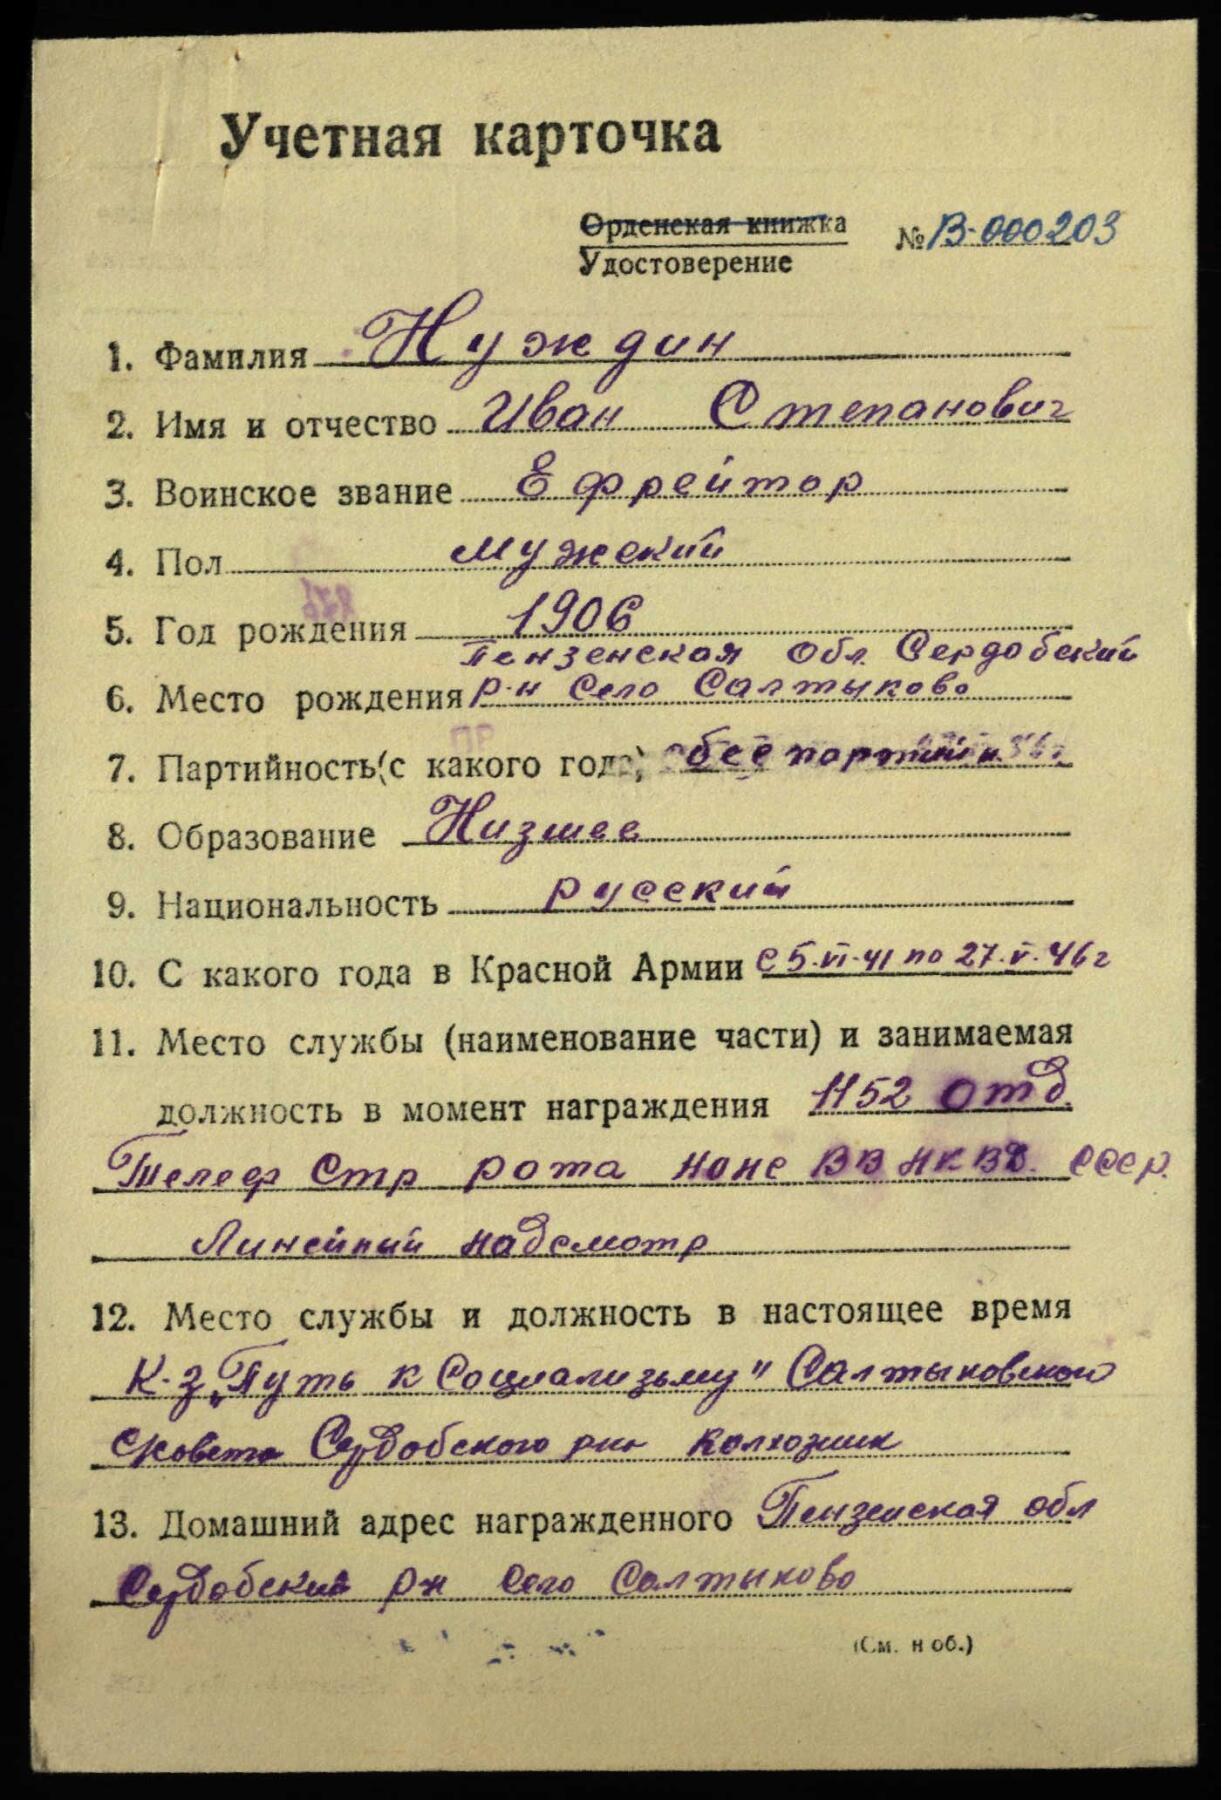 Учетная карточка
Орденская книжка
Удостоверение
№ В-000203
1. Фамилия Нуждин
2. Имя и отчество Иван Степанович
3. Воинское звание Ефрейтор
4. Пол мужский
5. Год рождения 1906
Пензенская обл. Сердобский
6. Место рождения р-н Село Салтыково
7. Партийность (с какого года)
8. Образование Низшее
9. Национальность русский
10. С какого года в Красной Армии С 5.VI.41 по 27.V.46 г
11. Место службы (наименование части) и занимаемая
должность в момент награждения 1152 отд.
Телеф Стр рота ВВ НКВД. СССР.
Линейный надсмотр
12. Место службы и должность в настоящее время
К-з „Путь к Социализьму" Салтыковского
Сердобского р-н Колхозник
13. Домашний адрес награжденного Пензенская обл
Сердобский р-н Село Салтыково
(См. н об.)